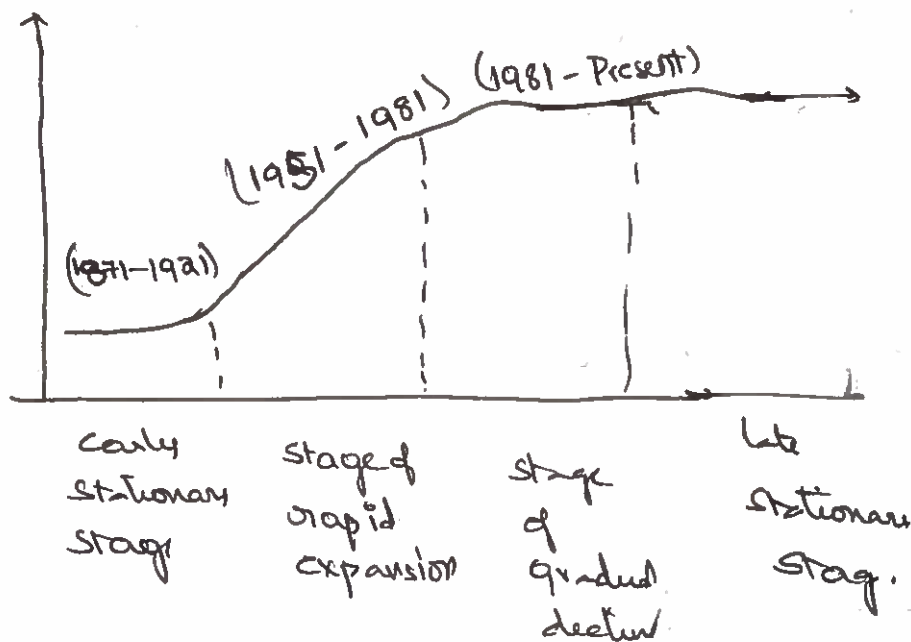 (1981 - Present)
(1951 - 1981)
(1871-1921)
early
stationary
stage
stage of
rapid
expansion
stage
of
gradual
decline
late
stationary
stag.